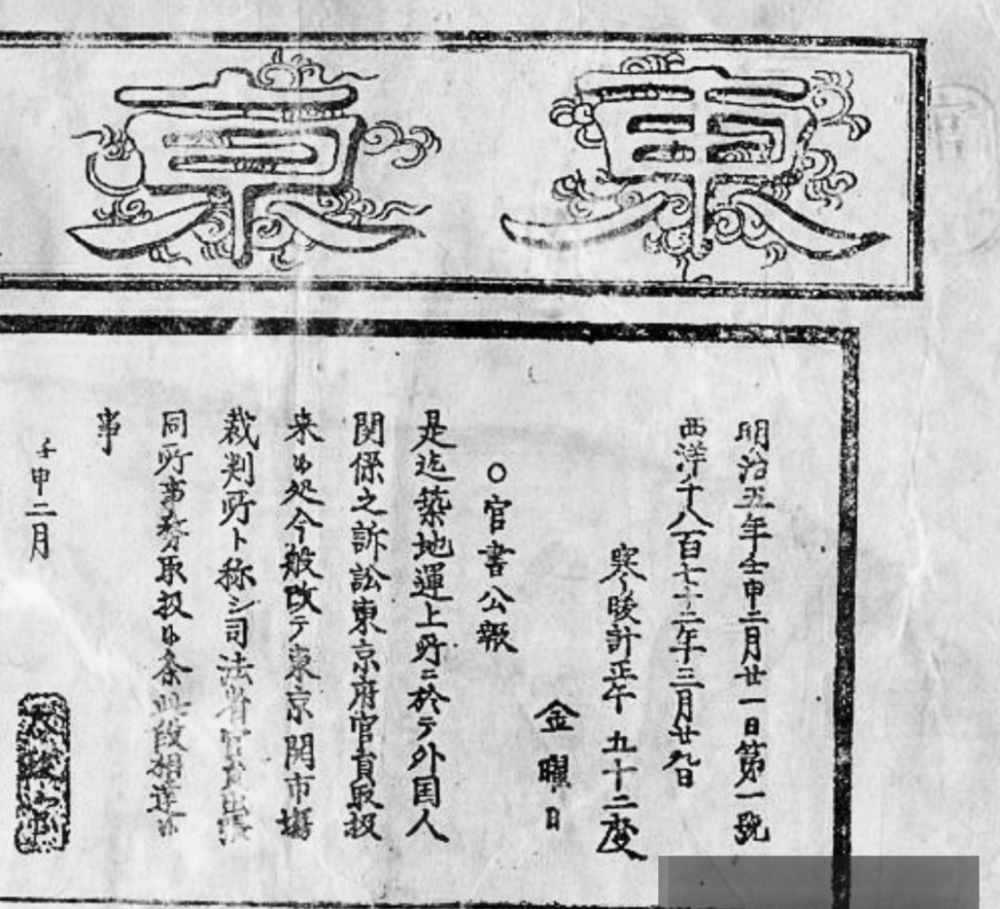 東京
明治五年壬申二月廿一日第一號
西洋千八百七十二年三月廿九日
寒暖計正午 五十二度
金曜日
○官書公報
是迄築地運上所ニ於テ外国人
関係之訴訟東京府官員取扱
来候処今般改テ東京開市場
裁判所ト称シ司法省官員出張
同所事務取扱候条此段相達候
事
壬申二月
太政官